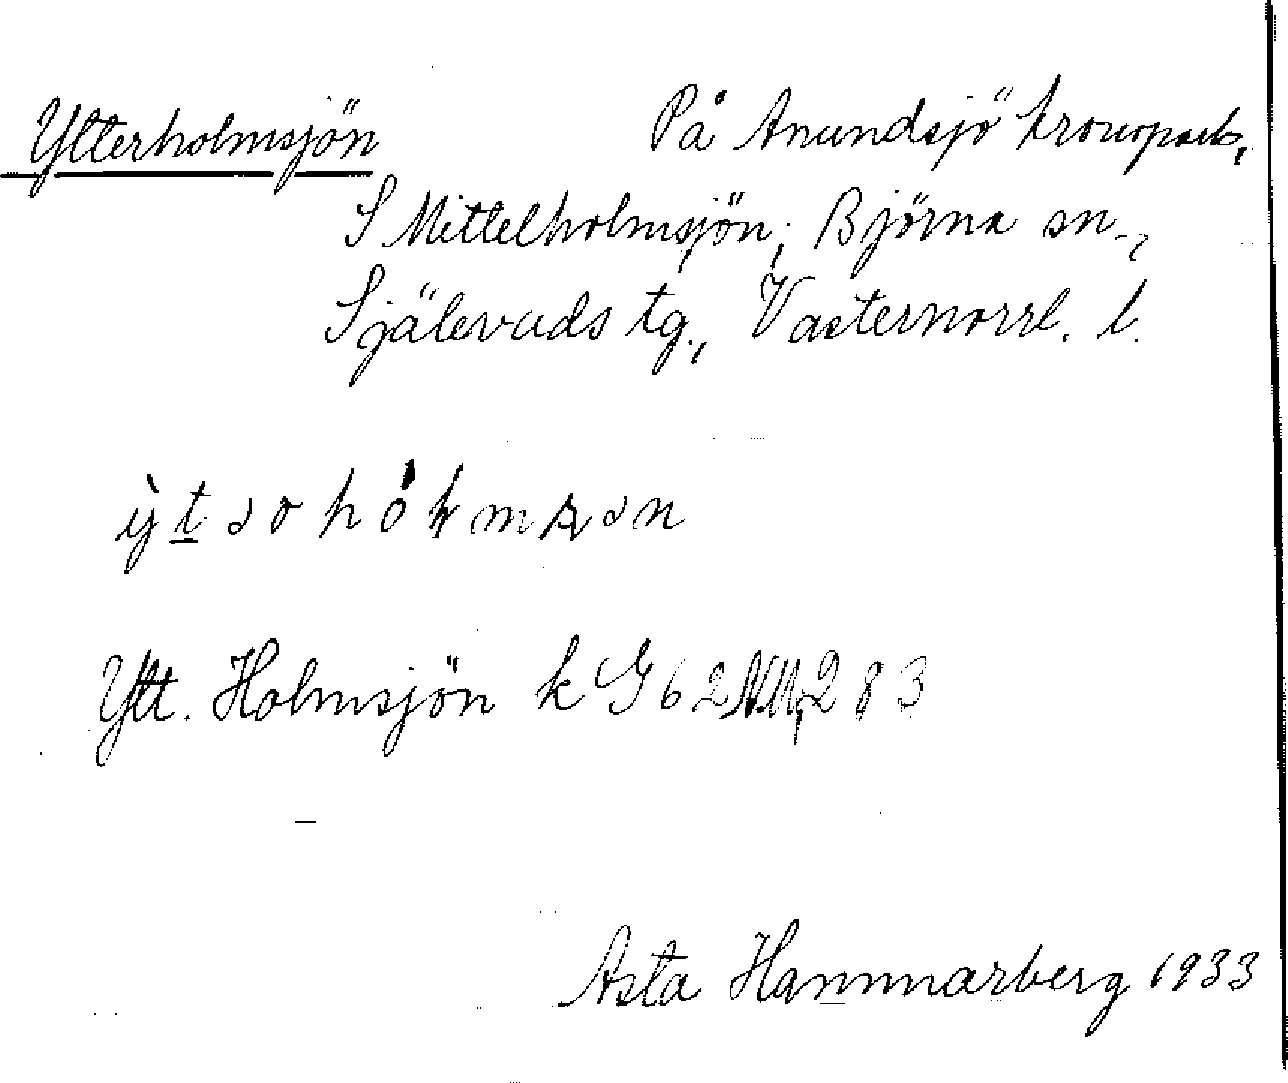 Ytterholmsjön På Anundsjö kronopark,
S Mittelholmsjön, Björna sn.,
Själevads tg., Västernorrl. l.
Ytt. Holmsjön k G 62 283
Asta Hammarberg 1933